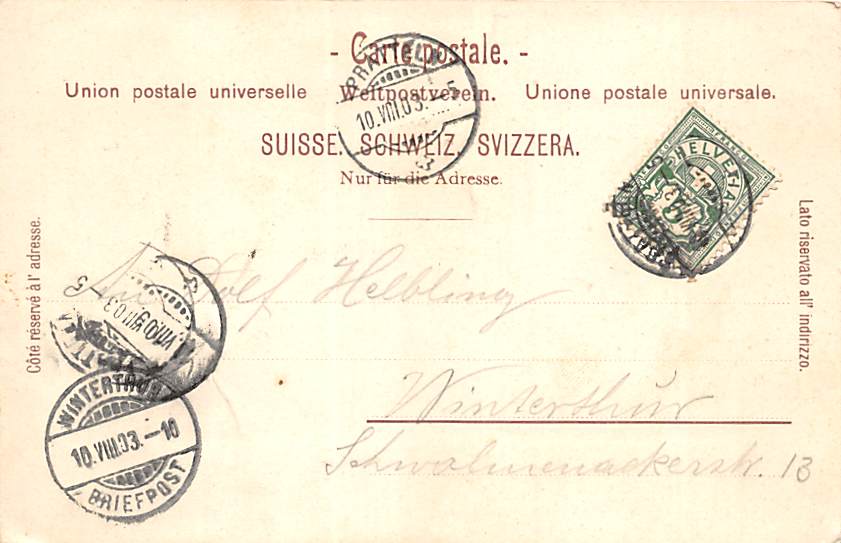 - Carte postale. -
Union postale universelle Weltpostverein. Unione postale universale.
SUISSE. SCHWEIZ. SVIZZERA.
Nur für die Adresse.
PRATTELN
10.VIII.03. 5
HELVETIA
FRANCO
Côté réservé à l'adresse.
Lato riservato all' indirizzo.
An Dolf Helbling
Winterthur
Schwalmenackerstr. 13
VIII.03.-5
WINTERTHUR
10.VIII.03.-10
BRIEFPOST